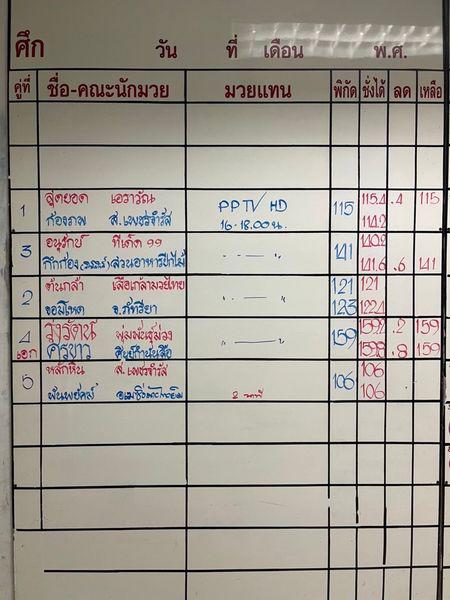 ศึก วัน ที่ เดือน พ.ศ.
คู่ที่ ชื่อ-คณะนักมวย มวยแทน พิกัด ชั่งได้ ลด เหลือ
1 สุดยอด เอราวัณ PPTV HD 115 115.4 .4 115
ก้องภพ ส.เพชรจำรัส 16-18.00 น. 114.2
3 อนุรักษ์ ทีเด็ด 99 141 140.2
กึกก้อง สวนอาหารปีกไม้ " — " 141.6 .6 141
2 ต้นกล้า เสือเกล้ามวยไทย " — " 121 121
จอมโหด จ.ภัทรียา 123 122.4
4 รุ่งรัตน์ พุ่มพันธุ์ม่วง " — " 159 159.2 .2 159
เอก ศรขาว 159.8 .8 159
5 หลักหิน ส.เพชรจำรัส 106 106
2 นาที 106